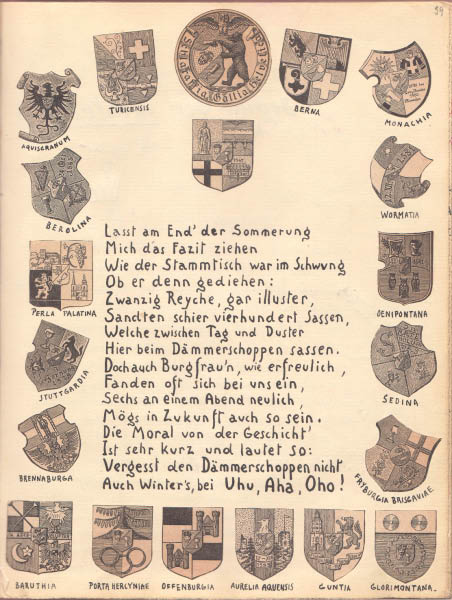 59
TURICENSIS
BERNA
MONACHIA
AQUISGRANUM
BEROLINA
WORMATIA
PERLA PALATINA
OENIPONTANA
STUTTGARDIA
SEDINA
BRENNABURGA
FRYBURGIA BRISGAVIAE
Lasst am End' der Sommerung
Mich das Fazit ziehen
Wie der Stammtisch war im Schwung
Ob er denn gediehen:
Zwanzig Reyche, gar illuster,
Sandten schier vierhundert Sassen,
Welche zwischen Tag und Duster
Hier beim Dämmerschoppen sassen.
Doch auch Burgfrau'n, wie erfreulich,
Fanden oft sich bei uns ein,
Sechs an einem Abend neulich,
Mögs in Zukunft auch so sein.
Die Moral von der Geschicht'
Ist sehr kurz und lautet so:
Vergesst den Dämmerschoppen nicht
Auch Winter's, bei Uhu, Aha, Oho!
BARUTHIA
PORTA HERCYNIAE
OFFENBURGIA
AURELIA AQUENSIS
GUNTIA
GLORIMONTANA.